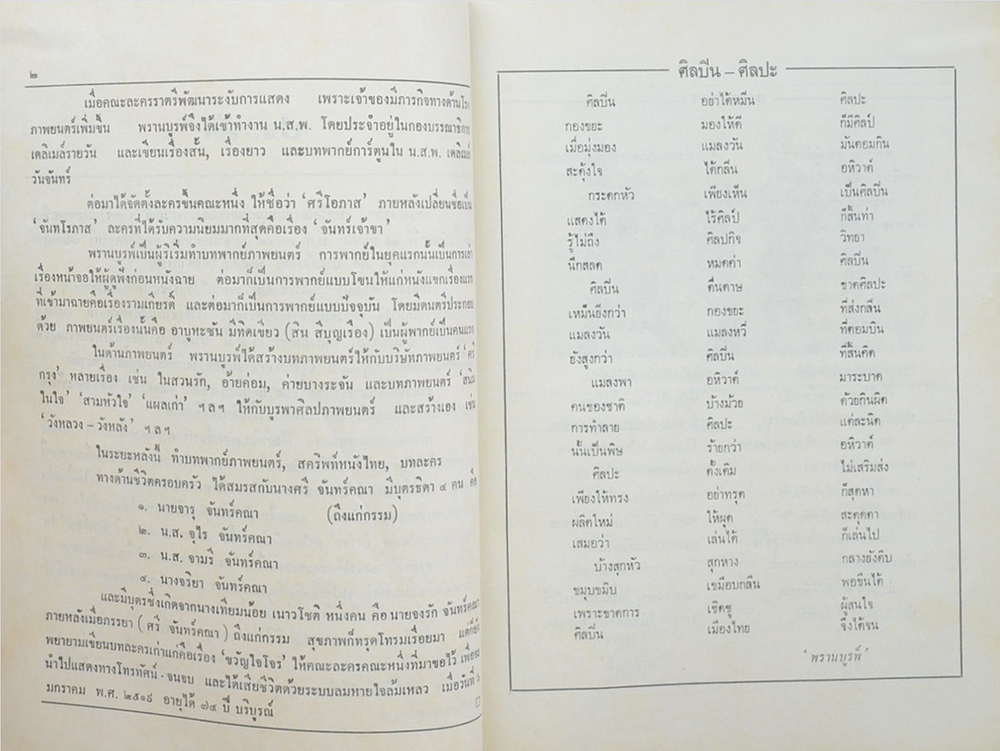 ๒
เมื่อคณะละครราตรีพัฒนาระงับการแสดง เพราะเจ้าของมีภารกิจทางด้านโรง
ภาพยนตร์เพิ่มขึ้น พรานบูรพ์จึงได้เข้าทำงาน น.ส.พ. โดยประจำอยู่ในกองบรรณาธิการ
เดลิเมล์รายวัน และเขียนเรื่องสั้น, เรื่องยาว และบทพากย์การ์ตูนใน น.ส.พ. เดลิเมล์
วันจันทร์
ต่อมาได้จัดตั้งละครขึ้นคณะหนึ่ง ให้ชื่อว่า 'ศรีโอภาส' ภายหลังเปลี่ยนชื่อเป็น
'จันทโรภาส' ละครที่ได้รับความนิยมมากที่สุดคือเรื่อง 'จันทร์เจ้าขา'
พรานบูรพ์เป็นผู้ริเริ่มทำบทพากย์ภาพยนตร์ การพากย์ในยุคแรกนั้นเป็นการเล่า
เรื่องหน้าจอให้ผู้ดูฟังก่อนหนังฉาย ต่อมาก็เป็นการพากย์แบบโขนให้แก่หนังแขกเรื่องแรก
ที่เข้ามาฉายคือเรื่องรามเกียรติ์ และต่อมาก็เป็นการพากย์แบบปัจจุบัน โดยมีดนตรีประกอบ
ด้วย ภาพยนตร์เรื่องนั้นคือ อาบูหะซัน มีทิดเขียว (สิน สีบุญเรือง) เป็นผู้พากย์เป็นคนแรก
ในด้านภาพยนตร์ พรานบูรพ์ได้สร้างบทภาพยนตร์ให้กับบริษัทภาพยนตร์ 'ศรี
กรุง' หลายเรื่อง เช่น ในสวนรัก, อ้ายค่อม, ค่ายบางระจัน และบทภาพยนตร์ 'สนิม
ในใจ' 'สามหัวใจ' 'แผลเก่า' ฯลฯ ให้กับบูรพาศิลปภาพยนตร์ และสร้างเอง เช่น
'วังหลวง – วังหลัง' ฯลฯ
ในระยะหลังนี้ ทำบทพากย์ภาพยนตร์, สคริพท์หนังไทย, บทละคร
ทางด้านชีวิตครอบครัว ได้สมรสกับนางศรี จันทร์คณา มีบุตรธิดา ๔ คน คือ
๑. นายจารุ จันทร์คณา (ถึงแก่กรรม)
๒. น.ส. จุไร จันทร์คณา
๓. น.ส. จามรี จันทร์คณา
๔. นางจริยา จันทร์คณา
และมีบุตรซึ่งเกิดจากนางเทียมน้อย เนาวโชติ หนึ่งคน คือ นายจงรัก จันทร์คณา
ภายหลังเมื่อภรรยา ( ศรี จันทร์คณา ) ถึงแก่กรรม สุขภาพก็ทรุดโทรมเรื่อยมา แต่ก็ยัง
พยายามเขียนบทละครเก่าแก่คือเรื่อง 'ขวัญใจโจร' ให้คณะละครคณะหนึ่งที่มาขอไว้ เพื่อจะ
นำไปแสดงทางโทรทัศน์ - จนจบ และได้เสียชีวิตด้วยระบบลมหายใจล้มเหลว เมื่อวันที่ ๖
มกราคม พ.ศ. ๒๕๑๙ อายุได้ ๗๔ ปี บริบูรณ์
ศิลปิน – ศิลปะ
ศิลปิน อย่าได้หมิ่น ศิลปะ
กองขยะ มองให้ดี ก็มีศิลป์
เมื่อมุ่งมอง แมลงวัน มันตอมกิน
สะดุ้งใจ ได้กลิ่น อหิวาต์
กระดกหัว เพียงเห็น เป็นศิลปิน
แสดงได้ ไร้ศิลป์ ก็สิ้นท่า
รู้ไม่ถึง ศิลปกิจ วิทยา
นึกสลด หมดค่า ศิลปิน
ศิลปิน ดื่นดาษ ขาดศิลปะ
เหม็นยิ่งกว่า กองขยะ ที่ส่งกลิ่น
แมลงวัน แมลงหวี่ ที่ตอมบิน
ยังสูงกว่า ศิลปิน ที่สิ้นคิด
แมลงพา อหิวาต์ มาระบาด
คนของชาติ บ้างม้วย ด้วยกินผิด
การทำลาย ศิลปะ แต่ละนิด
นั้นเป็นพิษ ร้ายกว่า อหิวาต์
ศิลปะ ดั้งเดิม ไม่เสริมส่ง
เพียงให้ทรง อย่าทรุด ก็สุดหา
ผลิตใหม่ ให้ผุด สะดุดตา
เสมอว่า เล่นได้ ก็เล่นไป
บ้างสุกหัว สุกหาง กลางยังดิบ
ขมุบขมิบ เขมือบกลืน พอขืนได้
เพราะขาดการ เชิดชู ผู้สนใจ
ศิลปิน เมืองไทย จึงได้จน
'พรานบูรพ์'